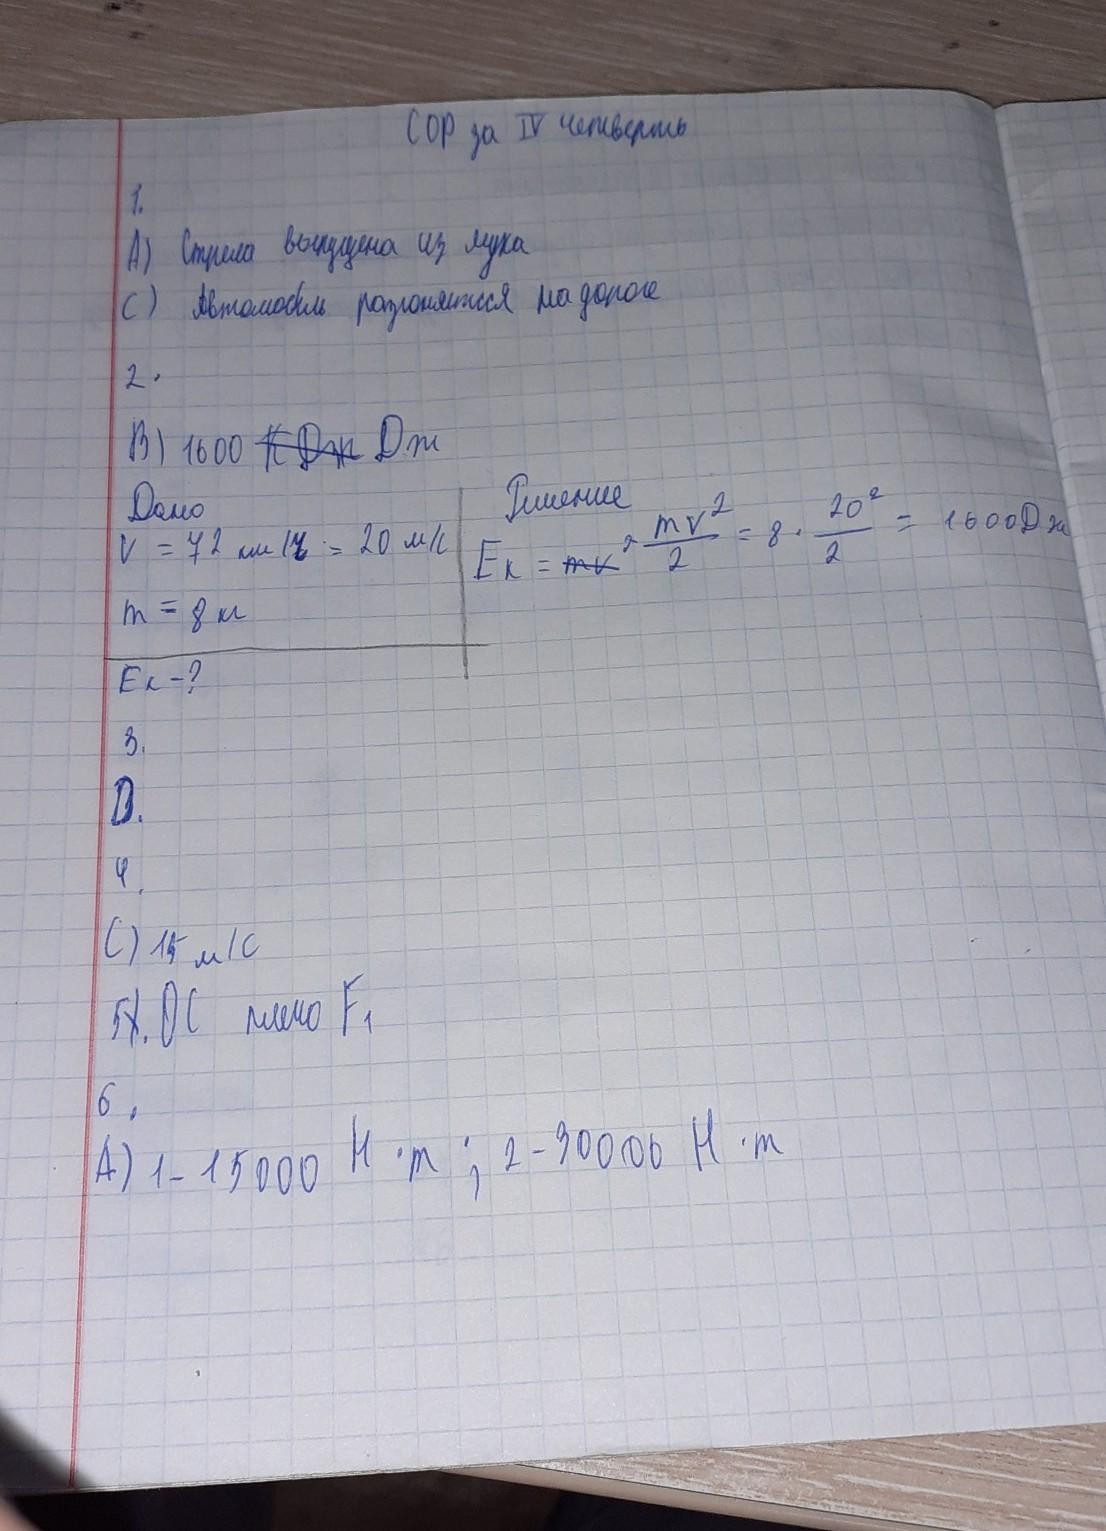 СОР за IV четверть
1.
А) Стрела выпущена из лука
С) Автомобиль разгоняется на дороге
2.
В) 1600 Дж
Дано
Решение
V = 72 км/ч = 20 м/с
Eк = mv²/2 = 8 · 20²/2 = 1600 Дж
m = 8 кг
Eк - ?
3.
D.
4.
С) 15 м/с
5. ОС плечо F₁
6.
А) 1-15000 Н·m ; 2-30000 Н·m